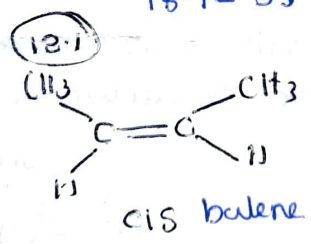 18.1
CH3 CH3
C=C
H H
cis butene